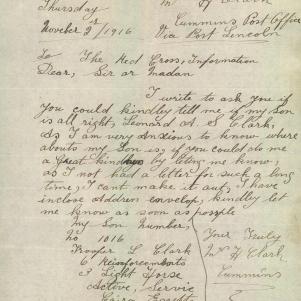 Thursday
Mr H Clark
Novober 2st/1916
Cummins Post Office
Via Port Lincoln
To The Red Cross, Information
Dear, Sir or Madan
I write to ask you if
you could kindly tell me if my Son
is all right, Leonard A. S Clark,
as I am very Anxious to know where
about my Son is, if you could do me
a Great kindness by leting me know,
as I not had a letter for such a long
time, I cant make it out, I have
inclose address envelop, kindly let
me know as soon as posple
My Son Number,
No 1016
Trooper L Clark
6 Reinforcements
3 Light Horse
Active, Servic
Your Truly
H Clark
Cummins